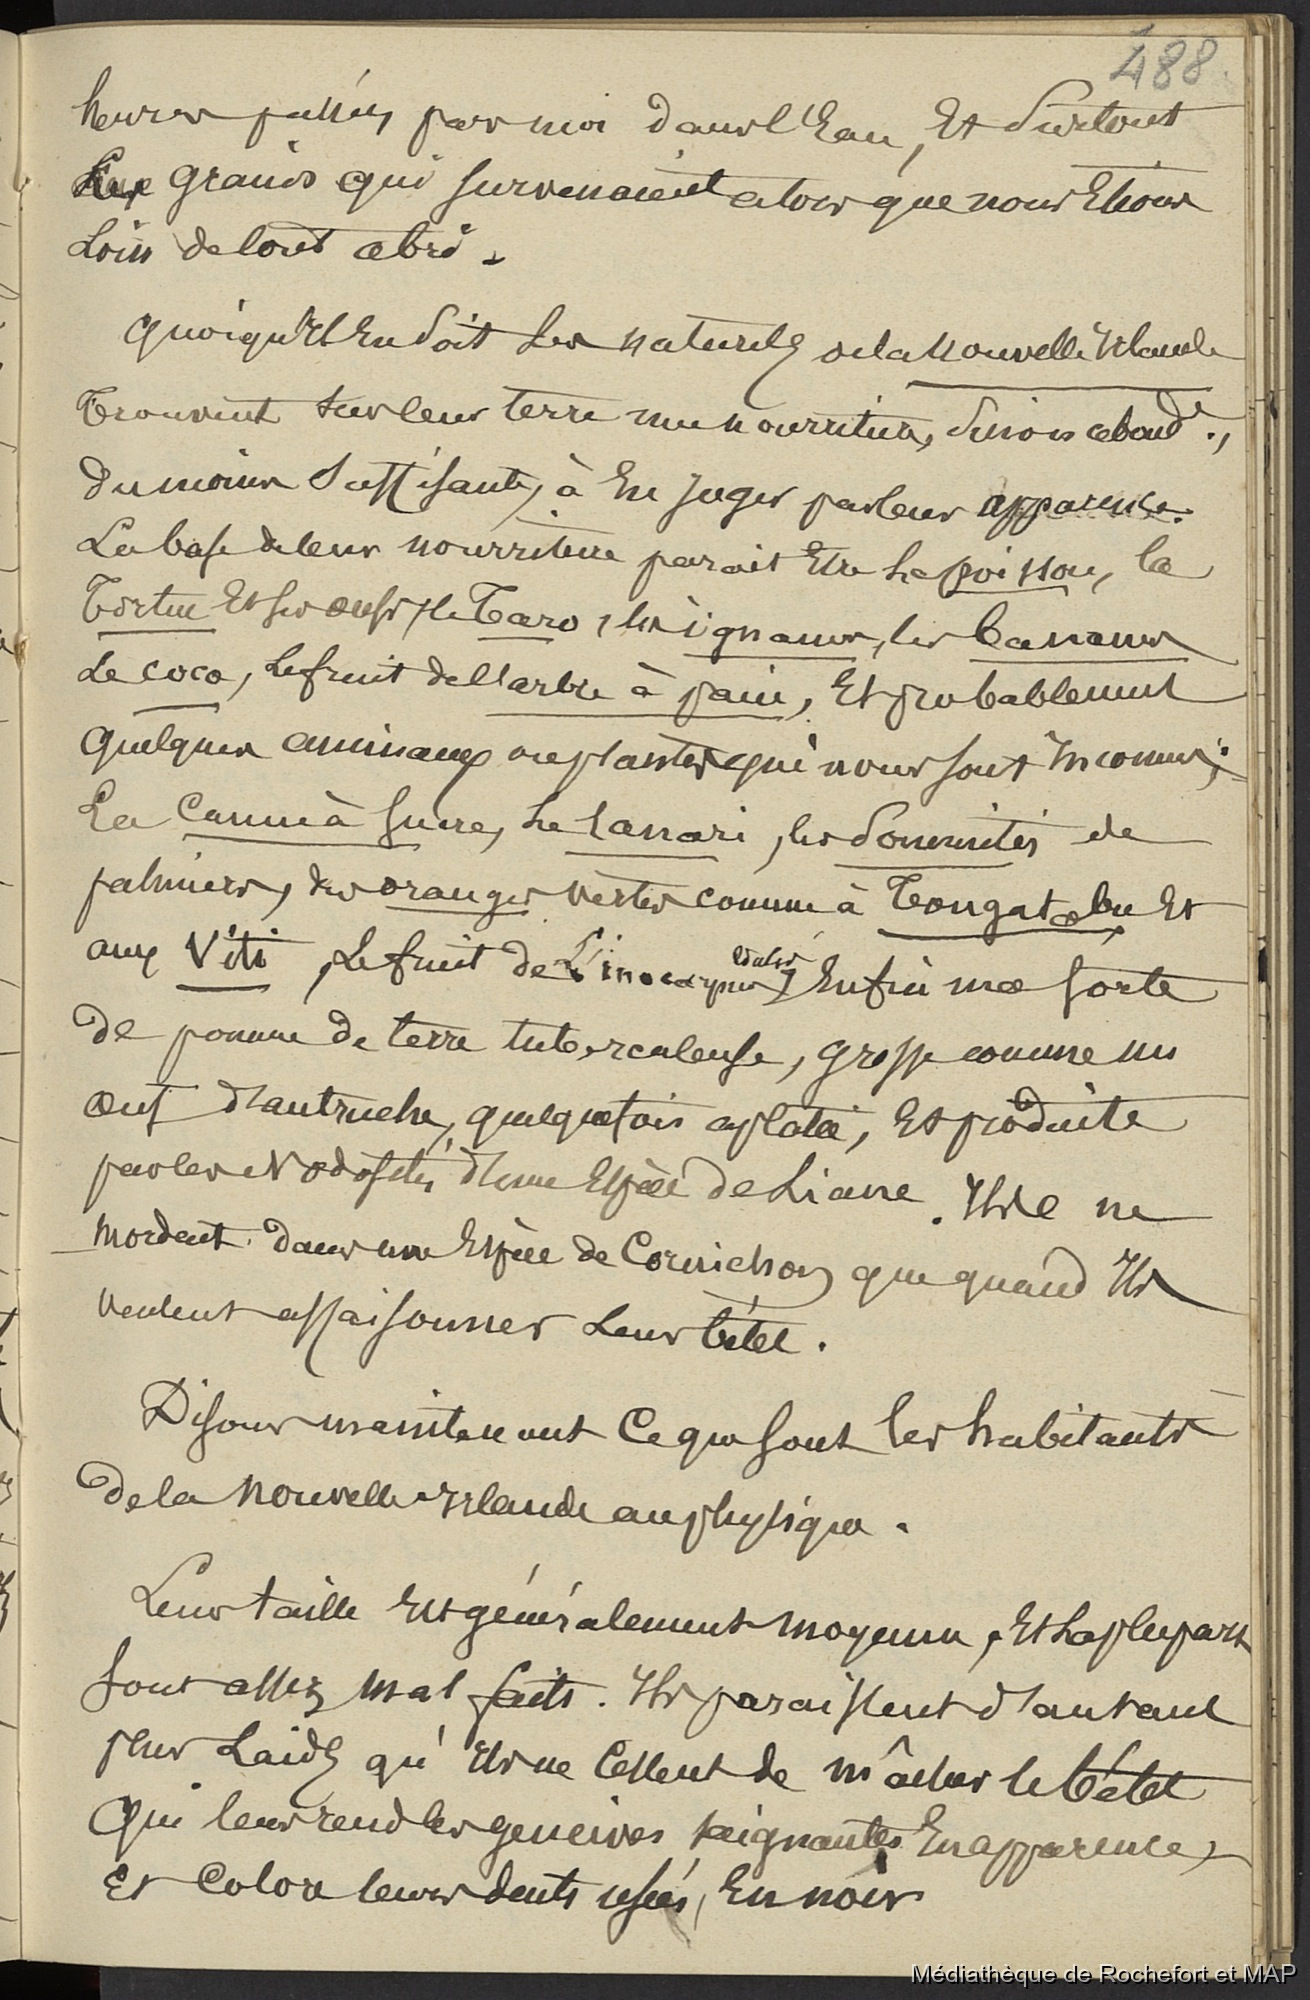 488
heures passées par moi dans l'Eau, Et Surtout
Les grains qui survenaient alors que nous Etions
Loin de tout abri.
Quoiqu'Il En Soit Les naturels de la Nouvelle Irlande
Trouvent sur leur terre une nourriture, Sinon abondte.,
du moins Suffisante, à En juger par leur apparence.
La base de leur nourriture parait Etre Le poisson, la
Tortue Et ses oeufs, le Taro, les ignames, les bananes
Le coco, Le fruit de l'arbre à pain, Et probablement
quelques animaux ou plantes qui nous sont Inconnus;
La Canne à Sucre, Le, les Sommités de
palmiers, des oranges vertes comme à Tongatabu Et
aux Viti, Le fruit de L'inocarpus edulis, Enfin une sorte
de pomme de terre tuberculeuse, grosse comme un
oeuf d'autruche, quelquefois aplatie, Et produite
par les Nodosités d'une Espèce de Liane. Ils ne
mordent dans une Espèce de Cornichons que quand Ils
veulent assaisonner Leur bétel.
Disons maintenant Ce que sont les habitants
de la Nouvelle Irlande au physique.
Leur taille Est généralement moyenne, Et La plupart
sont assez mal faits. Ils paraissent d'autant
plus Laids qu'Ils ne Cessent de mâcher le bétel
Qui leur rend les gencives saignantes En apparence,
Et Colore leurs dents usées, En noir
Médiathèque de Rochefort et MAP